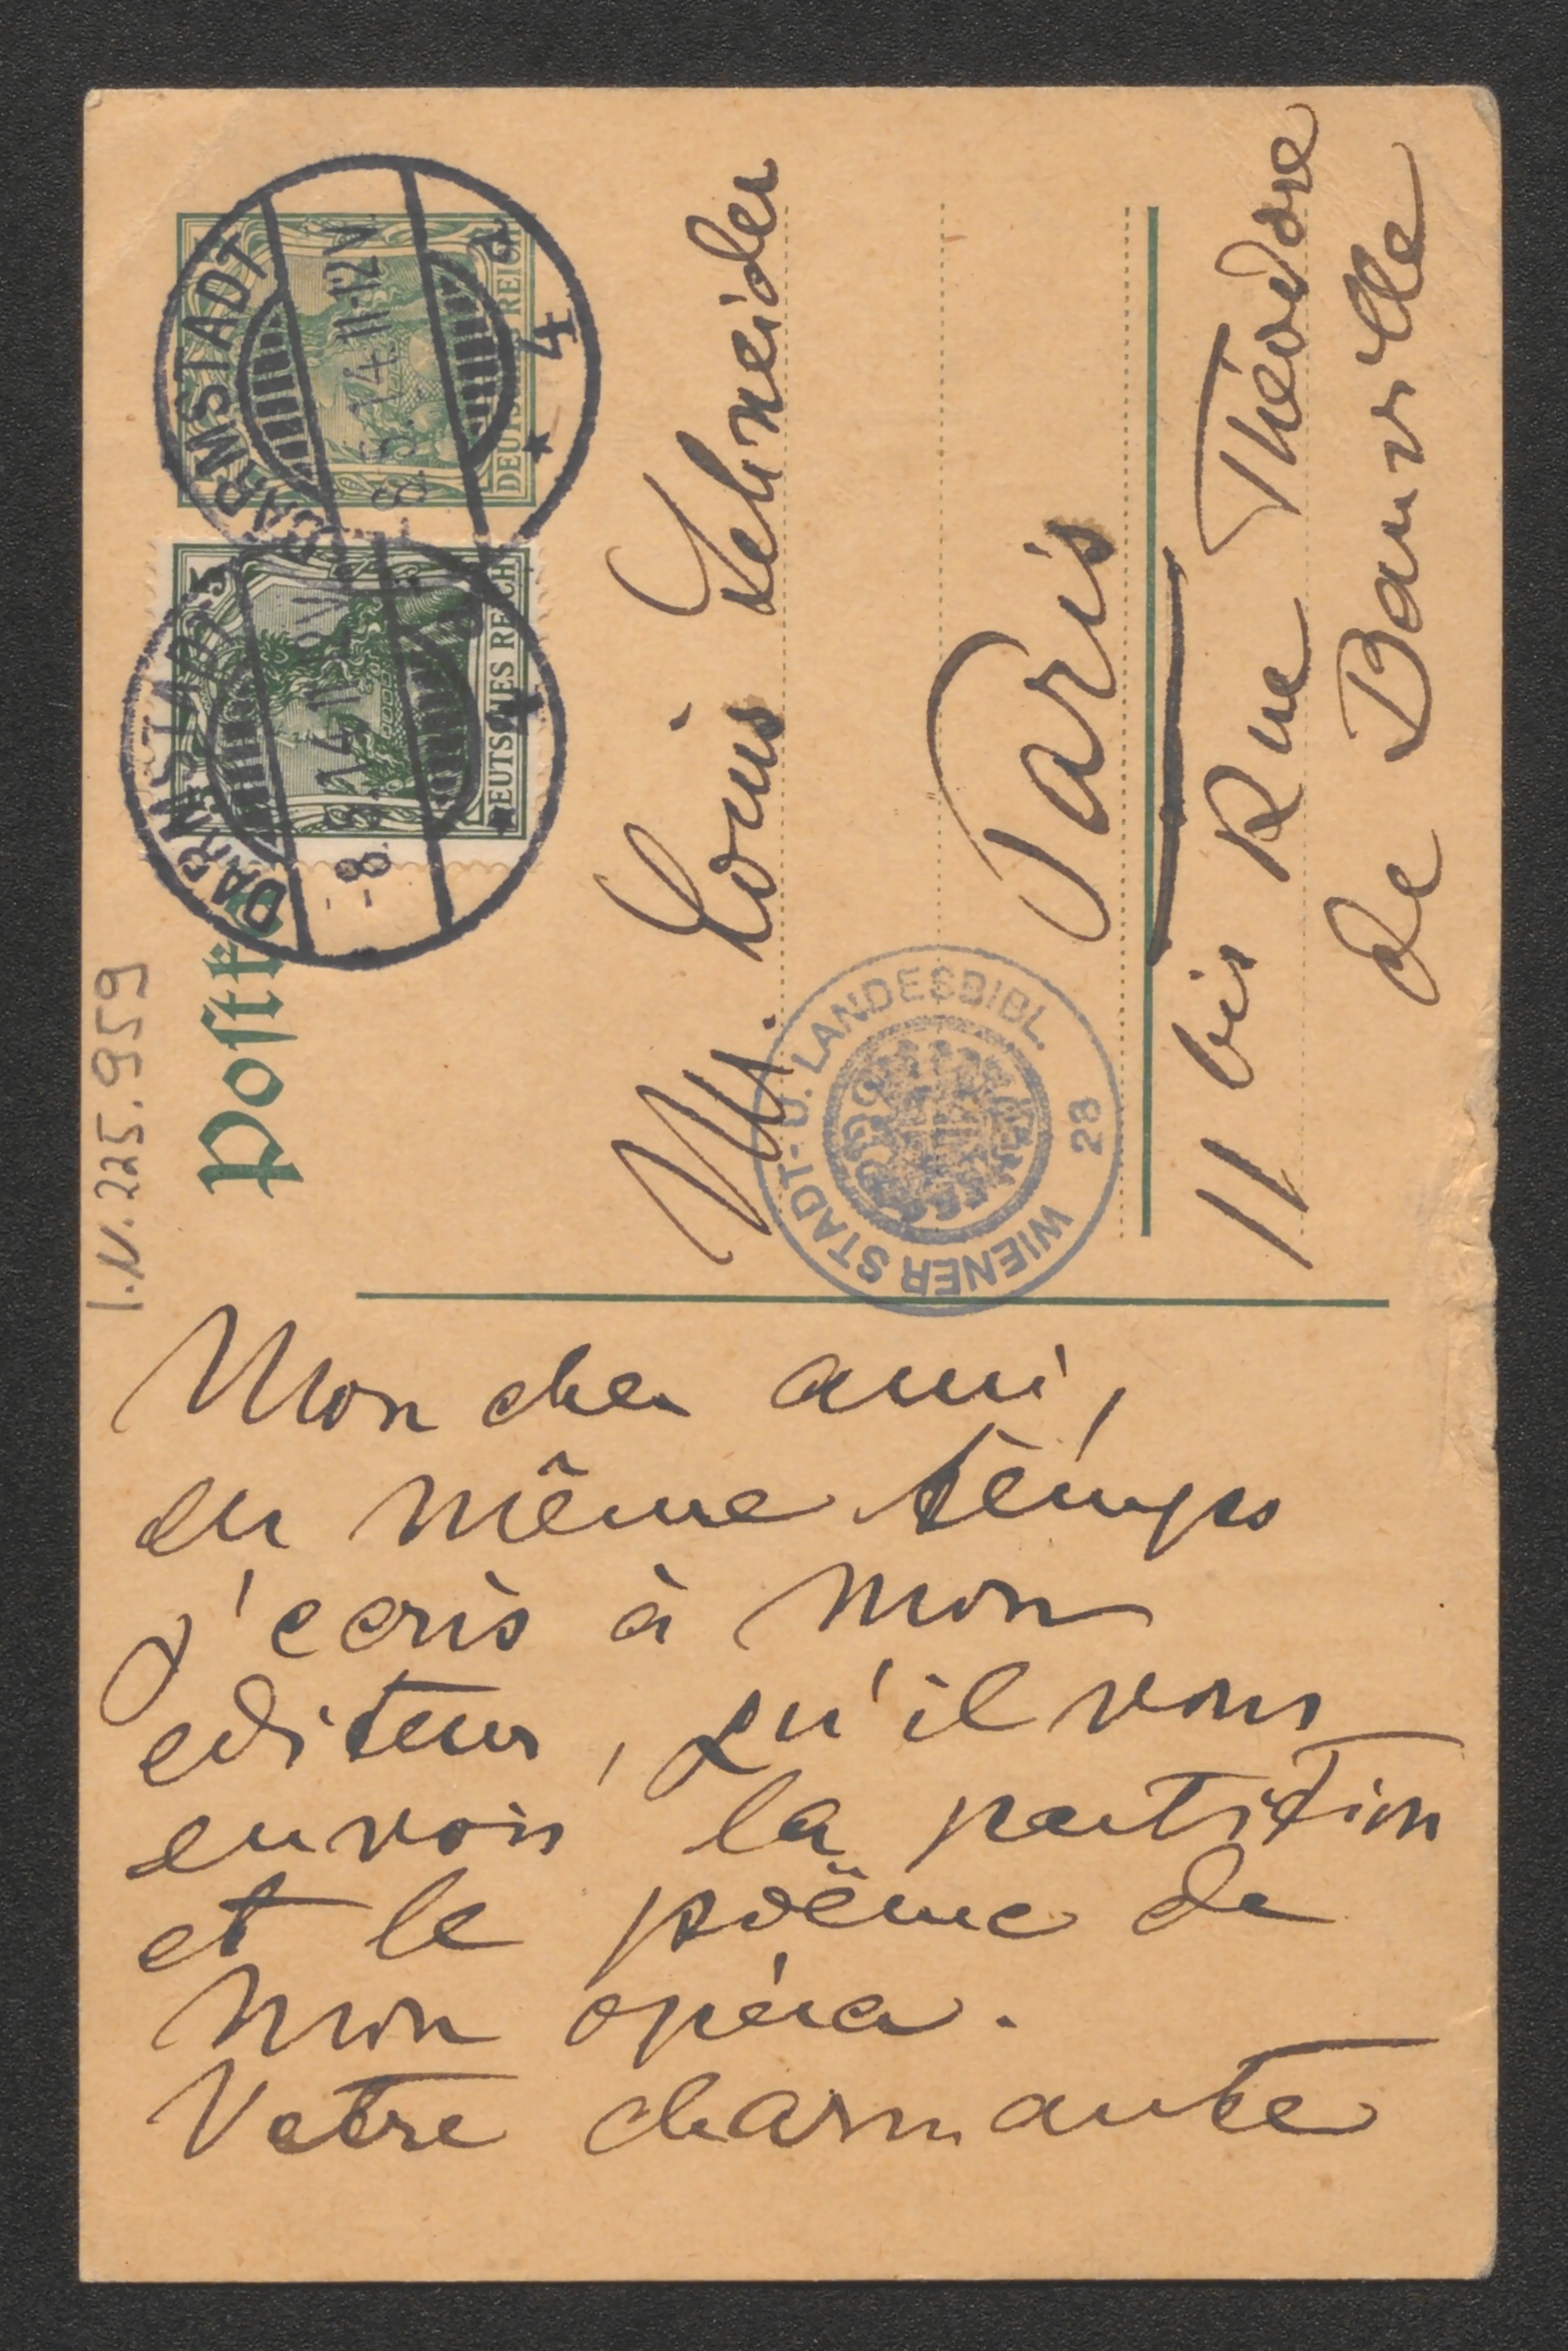 I.N. 225.959
Postk
DARMSTADT
-8.5.14.11-12V.
* 4
DEUTSCHES REICH
DARMSTADT
-8.5.14.11-12V.
* 4
DEUTSCHES REICH
M. Louis Schneider
Paris
11 bis Rue Théodore
de Banville
WIENER STADT- U. LANDESBIBL.
28
Mon cher ami,
en même temps
j'ecris à mon
editeur, qu'il vous
envois la partition
et le poëme de
mon opéra.
Votre charmante